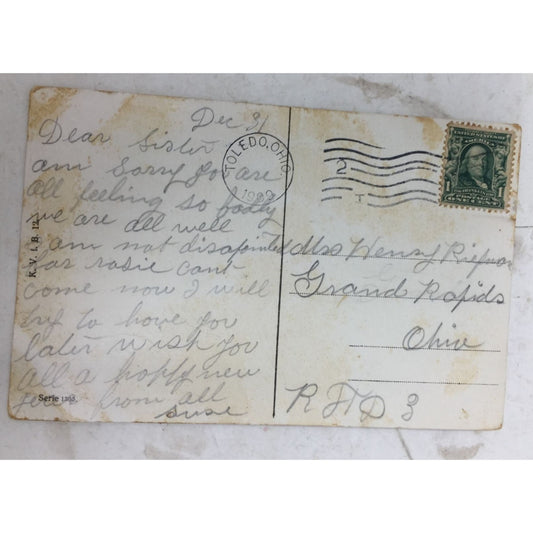 Dec 31
Dear Sister
am sorry you are
all feeling so badly
we are all well
I am not disapointed
for rosie cant
come now I will
try to have you
later wish you
all a happy new
year from all
Suse
K. V. i. B. 12
Serie
TOLEDO, OHIO.
2
UNITED STATES
OF AMERICA
1
Mrs Henry
Grand Rapids
Ohio
R F D 3